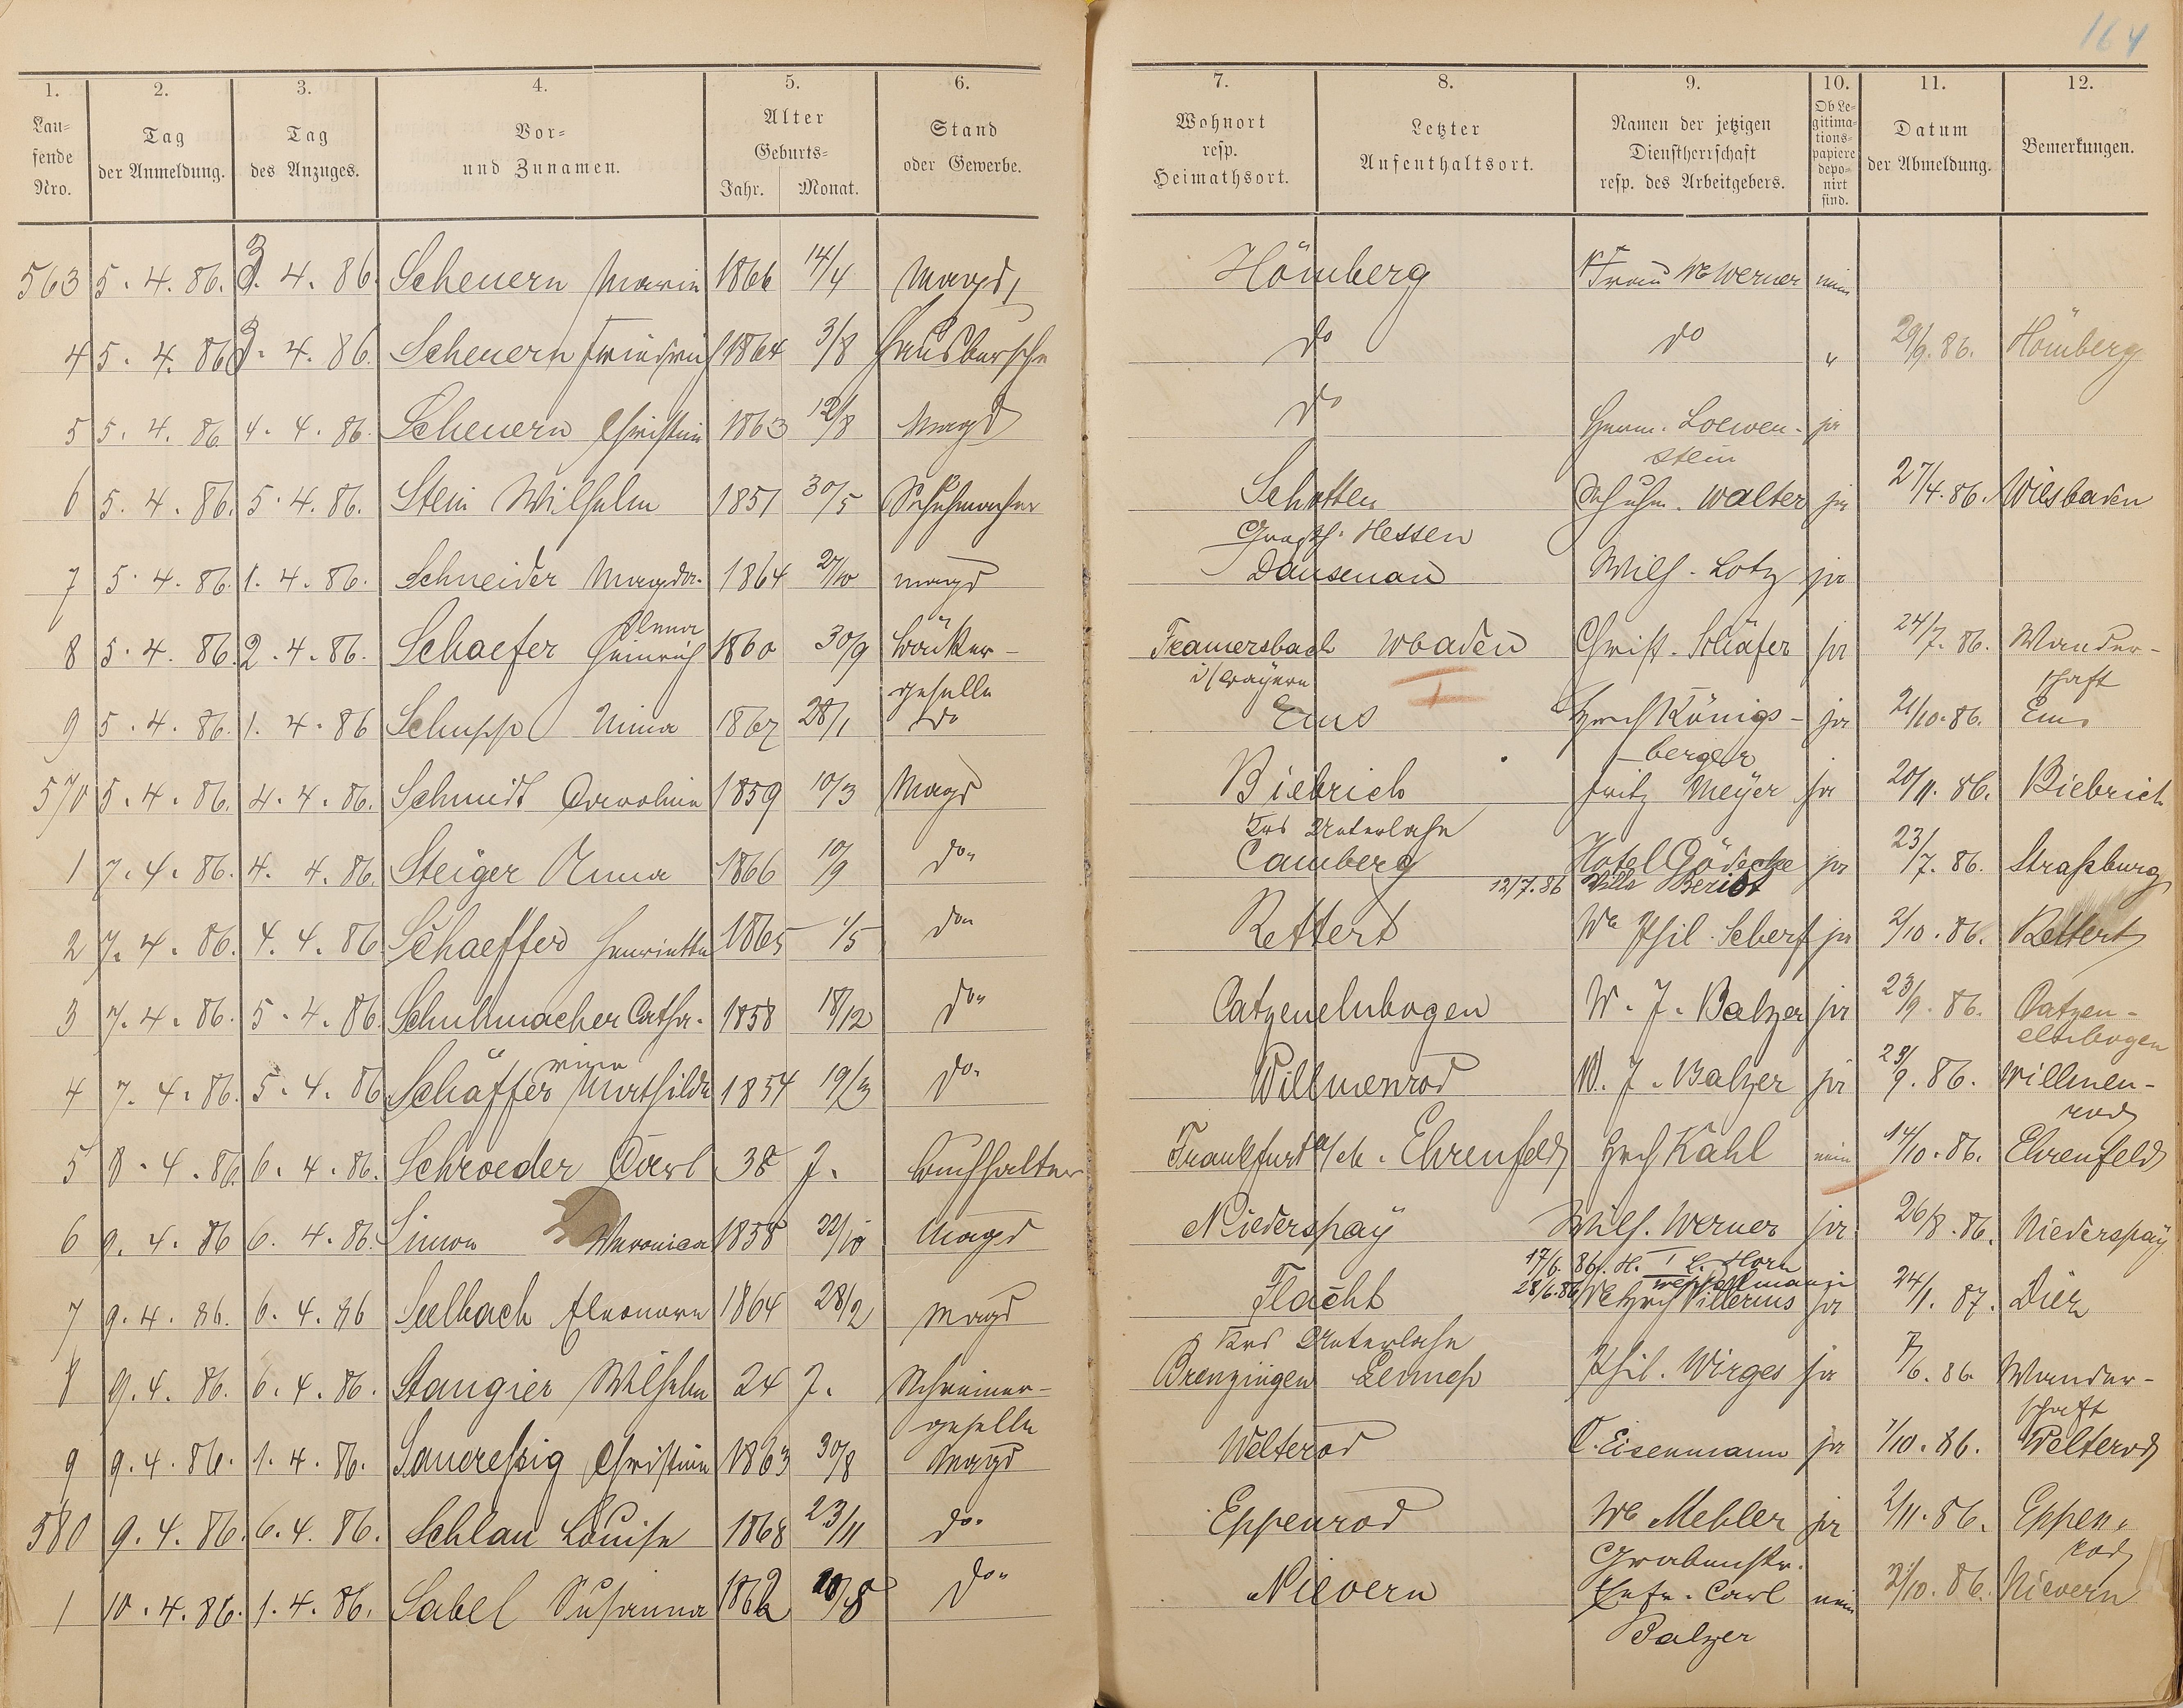 164
1. 2. 3. 4. 5. 6. 7. 8. 9. 10. 11. 12.
Lau-
fende
Nro.
Tag
der Anmeldung.
Tag
des Anzuges.
Vor-
und Zunamen.
Alter
Geburts-
Jahr. Monat.
Stand
oder Gewerbe.
Wohnort
resp.
Heimathsort.
Letzter
Aufenthaltsort.
Namen der jetzigen
Dienstherrschaft
resp. des Arbeitgebers.
Ob Le-
gitima-
tions-
papiere
depo-
nirt
sind.
Datum
der Abmeldung.
Bemerkungen.
563 5. 4. 86. 3. 4. 86. Scheuern Marie 1866 14/4 Magd Hömberg Frau We Werner nein
4 5. 4. 86 3. 4. 86. Scheuern Friedrich 1864 3/8 Hausbursche do do " 29/9. 86. Hömberg
5 5. 4. 86 4. 4. 86. Scheuern Christine 1863 12/8 Magd do Herm. Loewen- ja
stein
6 5. 4. 86. 5. 4. 86. Stein Wilhelm 1851 30/5 Schuhmacher Schotten Schuhm. Walter ja 27/4. 86. Wiesbaden
Großh. Hessen
7 5. 4. 86. 1. 4. 86. Schneider Magda- 1864 27/10 Magd Dausenau Wilh. Lotz ja
lena
8 5. 4. 86. 2. 4. 86. Schaefer Heinrich 1860 30/9 Bäcker- Framersbach Wbaden Christ. Schäfer ja 24/7. 86. Wander-
geselle i/Bayern schaft
9 5. 4. 86. 1. 4. 86 Schupp Nina 1867 28/1 do Ems Hrch Königs- ja 21/10. 86. Ems
berger
570 5. 4. 86. 4. 4. 86. Schmidt Caroline 1859 10/3 Magd Biebrich Fritz Meyer ja 20/11. 86. Biebrich
Krs Unterlahn
1 7. 4. 86. 4. 4. 86. Steiger Anna 1866 10/9 do" Camberg Hotel Gödecke ja 23/7. 86. Straßburg
12/7. 86 Villa Beriot
2 7. 4. 86. 4. 4. 86 Schaeffer Henriette 1865 1/5 do" Rettert We Phil. Scherf ja 2/10. 86. Rettert
3 7. 4. 86. 5. 4. 86 Schuhmacher Catha- 1858 18/12 do" Catzenelnbogen W. J. Balzer ja 23/9. 86. Catzen-
rine elnbogen
4 7. 4. 86. 5. 4. 86 Schäffer Mathilde 1854 19/3 do" Willmenrod W. J. Balzer ja 29/9. 86. Willmen-
rod
5 8. 4. 86. 6. 4. 86. Schroeder Carl 38 J. Buchhalter Frankfurt a/M. Ehrenfeld Hrch Kahl nein 14/10. 86. Ehrenfeld
6 9. 4. 86 6. 4. 86. Simon Veronica 1858 22/10 Magd Niederspay Wilh. Werner ja 26/8. 86. Niederspay
17/6. 86.
7 9. 4. 86. 6. 4. 86 Seelbach Eleonore 1864 28/2 Magd Flacht 28/6. 86 We Hrch Villerius ja 24/1. 87. Diez
Krs Unterlahn
8 9. 4. 86. 6. 4. 86. Stangier Wilhelm 24 J. Schreiner- Brenzingen Lennep Phil. Wirges ja 7/6. 86 Wander-
geselle schaft
9 9. 4. 86. 1. 4. 86. Sauereßig Christine 1863 30/8 Magd Welterod C. Eisenmann ja 1/10. 86. Welterod
580 9. 4. 86. 6. 4. 86. Schlau Louise 1868 23/11 do. Eppenrod We Mehler ja 2/11. 86. Eppen-
Grabenstr. rod
1 10. 4. 86. 1. 4. 86. Sabel Susanna 1862 10/8 do" Nievern Carl nein 21/10. 86. Nievern
Balzer